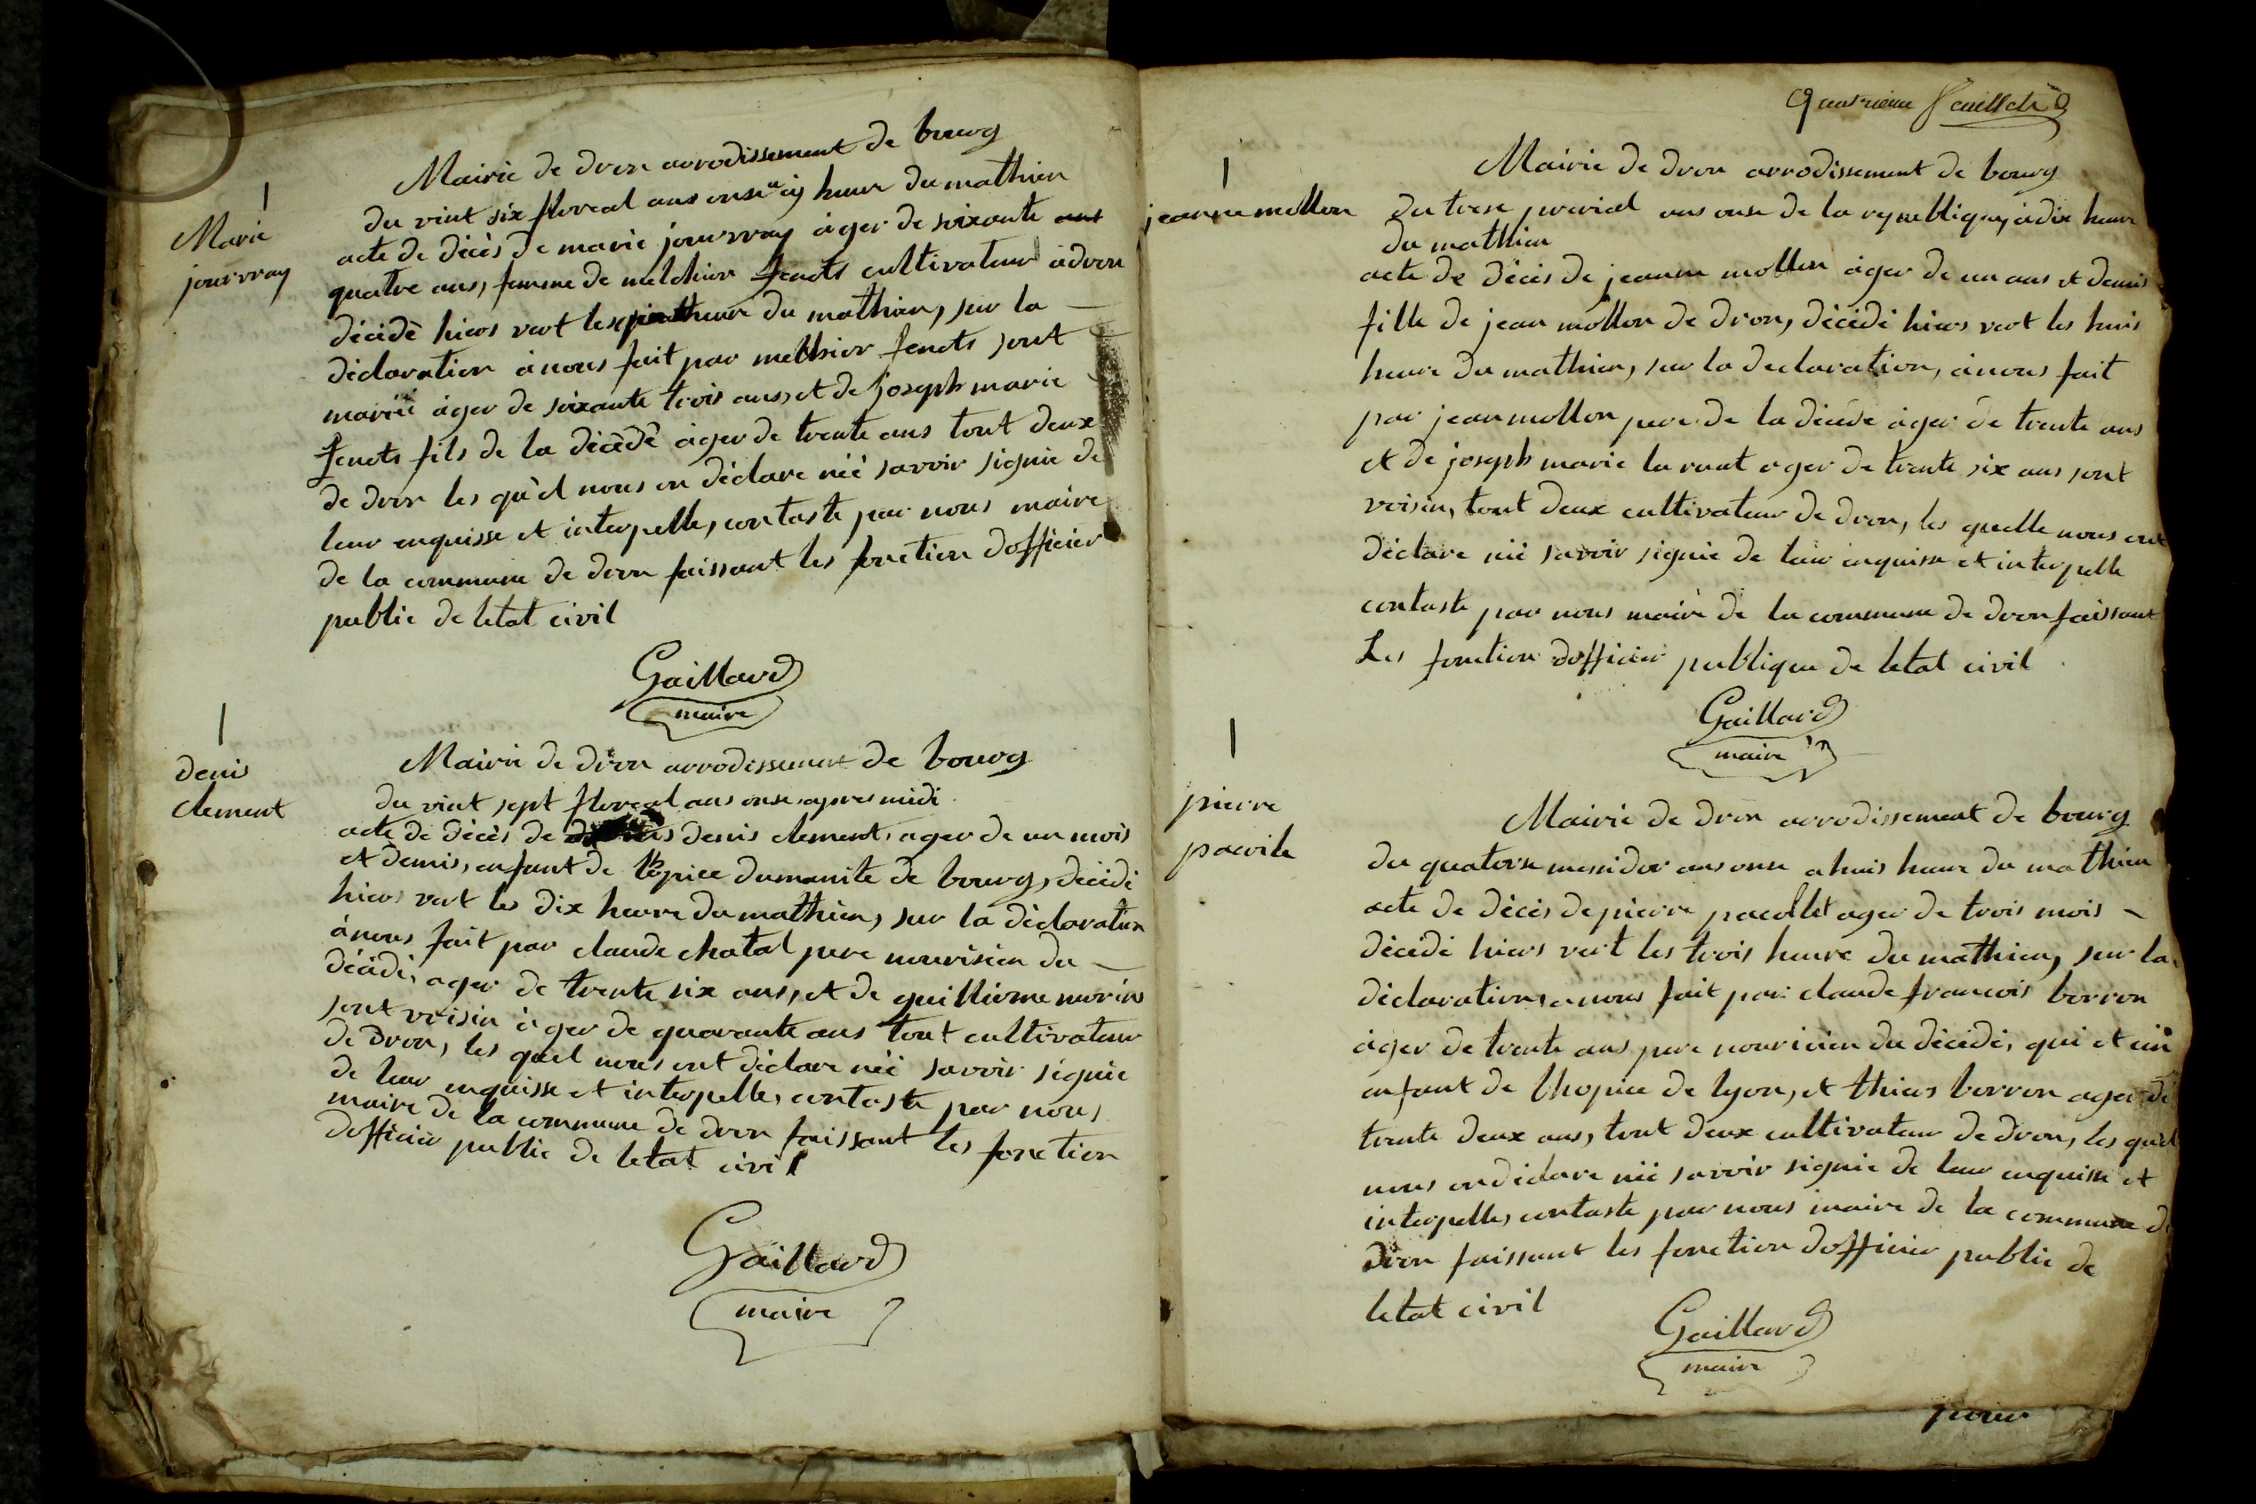 Marie
jouvray
Mairie de dron arrodissement de bourg
du vint six floreal ans onse a heure du mathien
acte de dècès de marie jouvray àger de soixante ant
quatre ans, femme de melchior fenots cultivateur àdron
dècidè hiers vert les heure du mathien, sur la
dèclaration ànous fait par melhior fenots sont
mariè àger de soixante trois ans, et de joseph marie
fenots fils de la dècèdè àger de trente ans tout deux
de dron les qu'el nous on dèclare niè savoir signie de
leur enquisse et interpelle, contaste par nous maire
de la commune de dron faissant les fonction dofficier
public de letat civil
Gaillard
maire
denis
clement
Mairie de dron arrodissement de bourg
du vint sept floreal ans onse apres midi
acte de dècès de denis clement, ager de un mois
et demis, enfant de lopice dumanite de bourg, dècidè
hiers vert les dix heure du mathien, sur la dèclaration
ànous fait par claude chatal pere nourisien du
dècidè, ager de trente six ans, et de guillierme morin
sont voisin àger de quarante ans tout cultivateur
de dron, les quel nous ont dèclare niè savoir signie
de leur enquisse et interpelle, contaste par nous
maire de la commune de dron faissant les fonction
dofficier public de letat civil
Gaillard
maire
Quatrieme feuillets
jeanne mollon
Mairie de dron arrodissement de bourg
du trese prerial ans onse de la republique, à dix heure
du mathien
acte de dècès de jeanne mollon àger de un ans et demis
fille de jean mollon de dron, dècèdè hiers vert les huis
heure du mathien, sur la declaration, ànous fait
par jean mollon pere de la dècède àger de trente ans
et de joseph marie la vant ager de trente six ans sont
voisin, tout deux cultivateur de dron, les quelle nous ont
dèclare niè savoir signie de leur enquisse et interpelle
contaste par nous maire de la commune de dron faissant
Les fonction dofficier publique de letat civil
Gaillard
maire
pierre
Mairie de dron arrodissement de bourg
du quatorse mesidor ans onse a huis heure du mathien
acte de dècès de pierre pacollet ager de trois mois
dècèdè hiers vert les trois heure du mathien, sur la
dèclaration, anous fait par claude francois borron
àger de trente ans pere nouricien du dècèdè, qui et un
enfant de lhopice de lyon, et thiers borron ager de
trente deux ans, tout deux cultivateur de dron, les quel
nous on dèclare niè savoir signie de leur enquisse et
interpelle, contaste par nous maire de la commune de
dron faissant les fonction dofficier public de
letat civil
Gaillard
maire